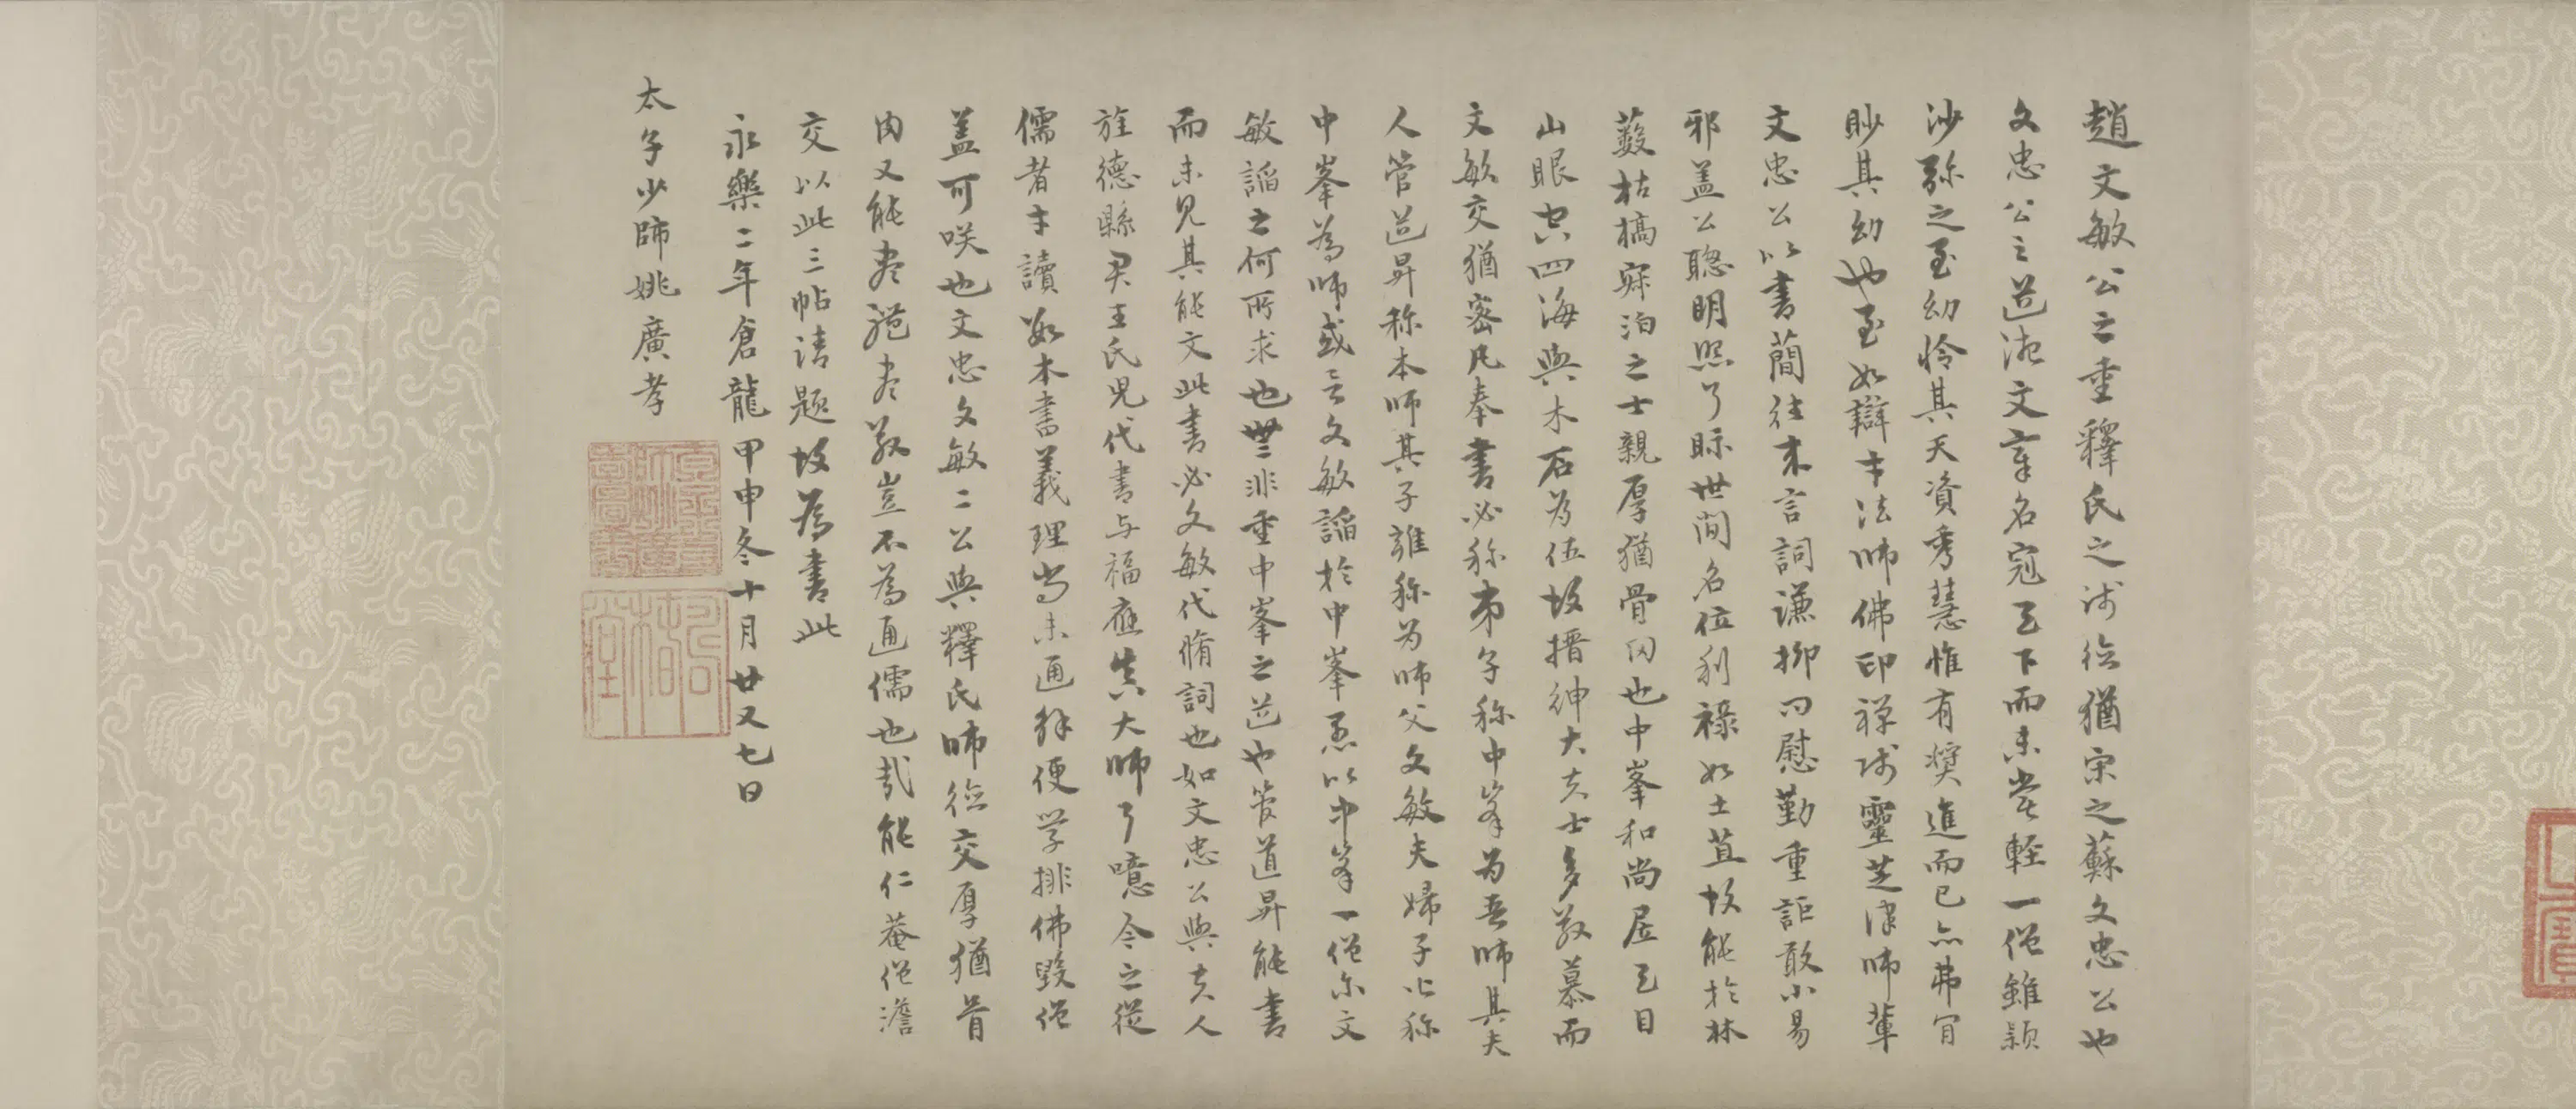 趙文敏公之重釋氏之深徒猶宋之蘇文忠公也
文忠公之道德文章名冠天下而未嘗輕一僧雖穎
沙弥之至幼怜其天資秀慧惟有奬進而已亦弗冝
眇其幼也至如辯才法师佛印禅师靈芝律师輩
文忠公以書蕳往来言詞谦抑问慰勤重詎敢小易
邪盖公聦明照了眎世间名位利祿如土苴故能於林
薮枯槁寂泊之士親厚猶骨肉也中峯和尚居天目
山眼空四海與木石为伍故搢绅大夫士多敬慕而
文敏交猶密凡奉書必称弟子称中峯为吾师其夫
人管道昇称本师其子雍称为师父文敏夫婦子止称
中峯為师或言文敏謟於中峯焉以中峯一僧尔文
敏謟之何所求也無非重中峯之道也管道昇能書
而未見其能文此書必文敏代脩詞也如文忠公與夫人
旌德縣君王氏兒代書与福應真大师了噫今之從
儒者才讀數本書義理尚未通解便学排佛毀僧
盖可咲也文忠文敏二公與釋氏师徒交厚猶骨
肉又能盡禮盡敬豈不為通儒也哉能仁菴僧澹
交以此三帖请题故為書此
永樂二年倉龍甲申冬十月廿又七日
太子少師姚廣孝